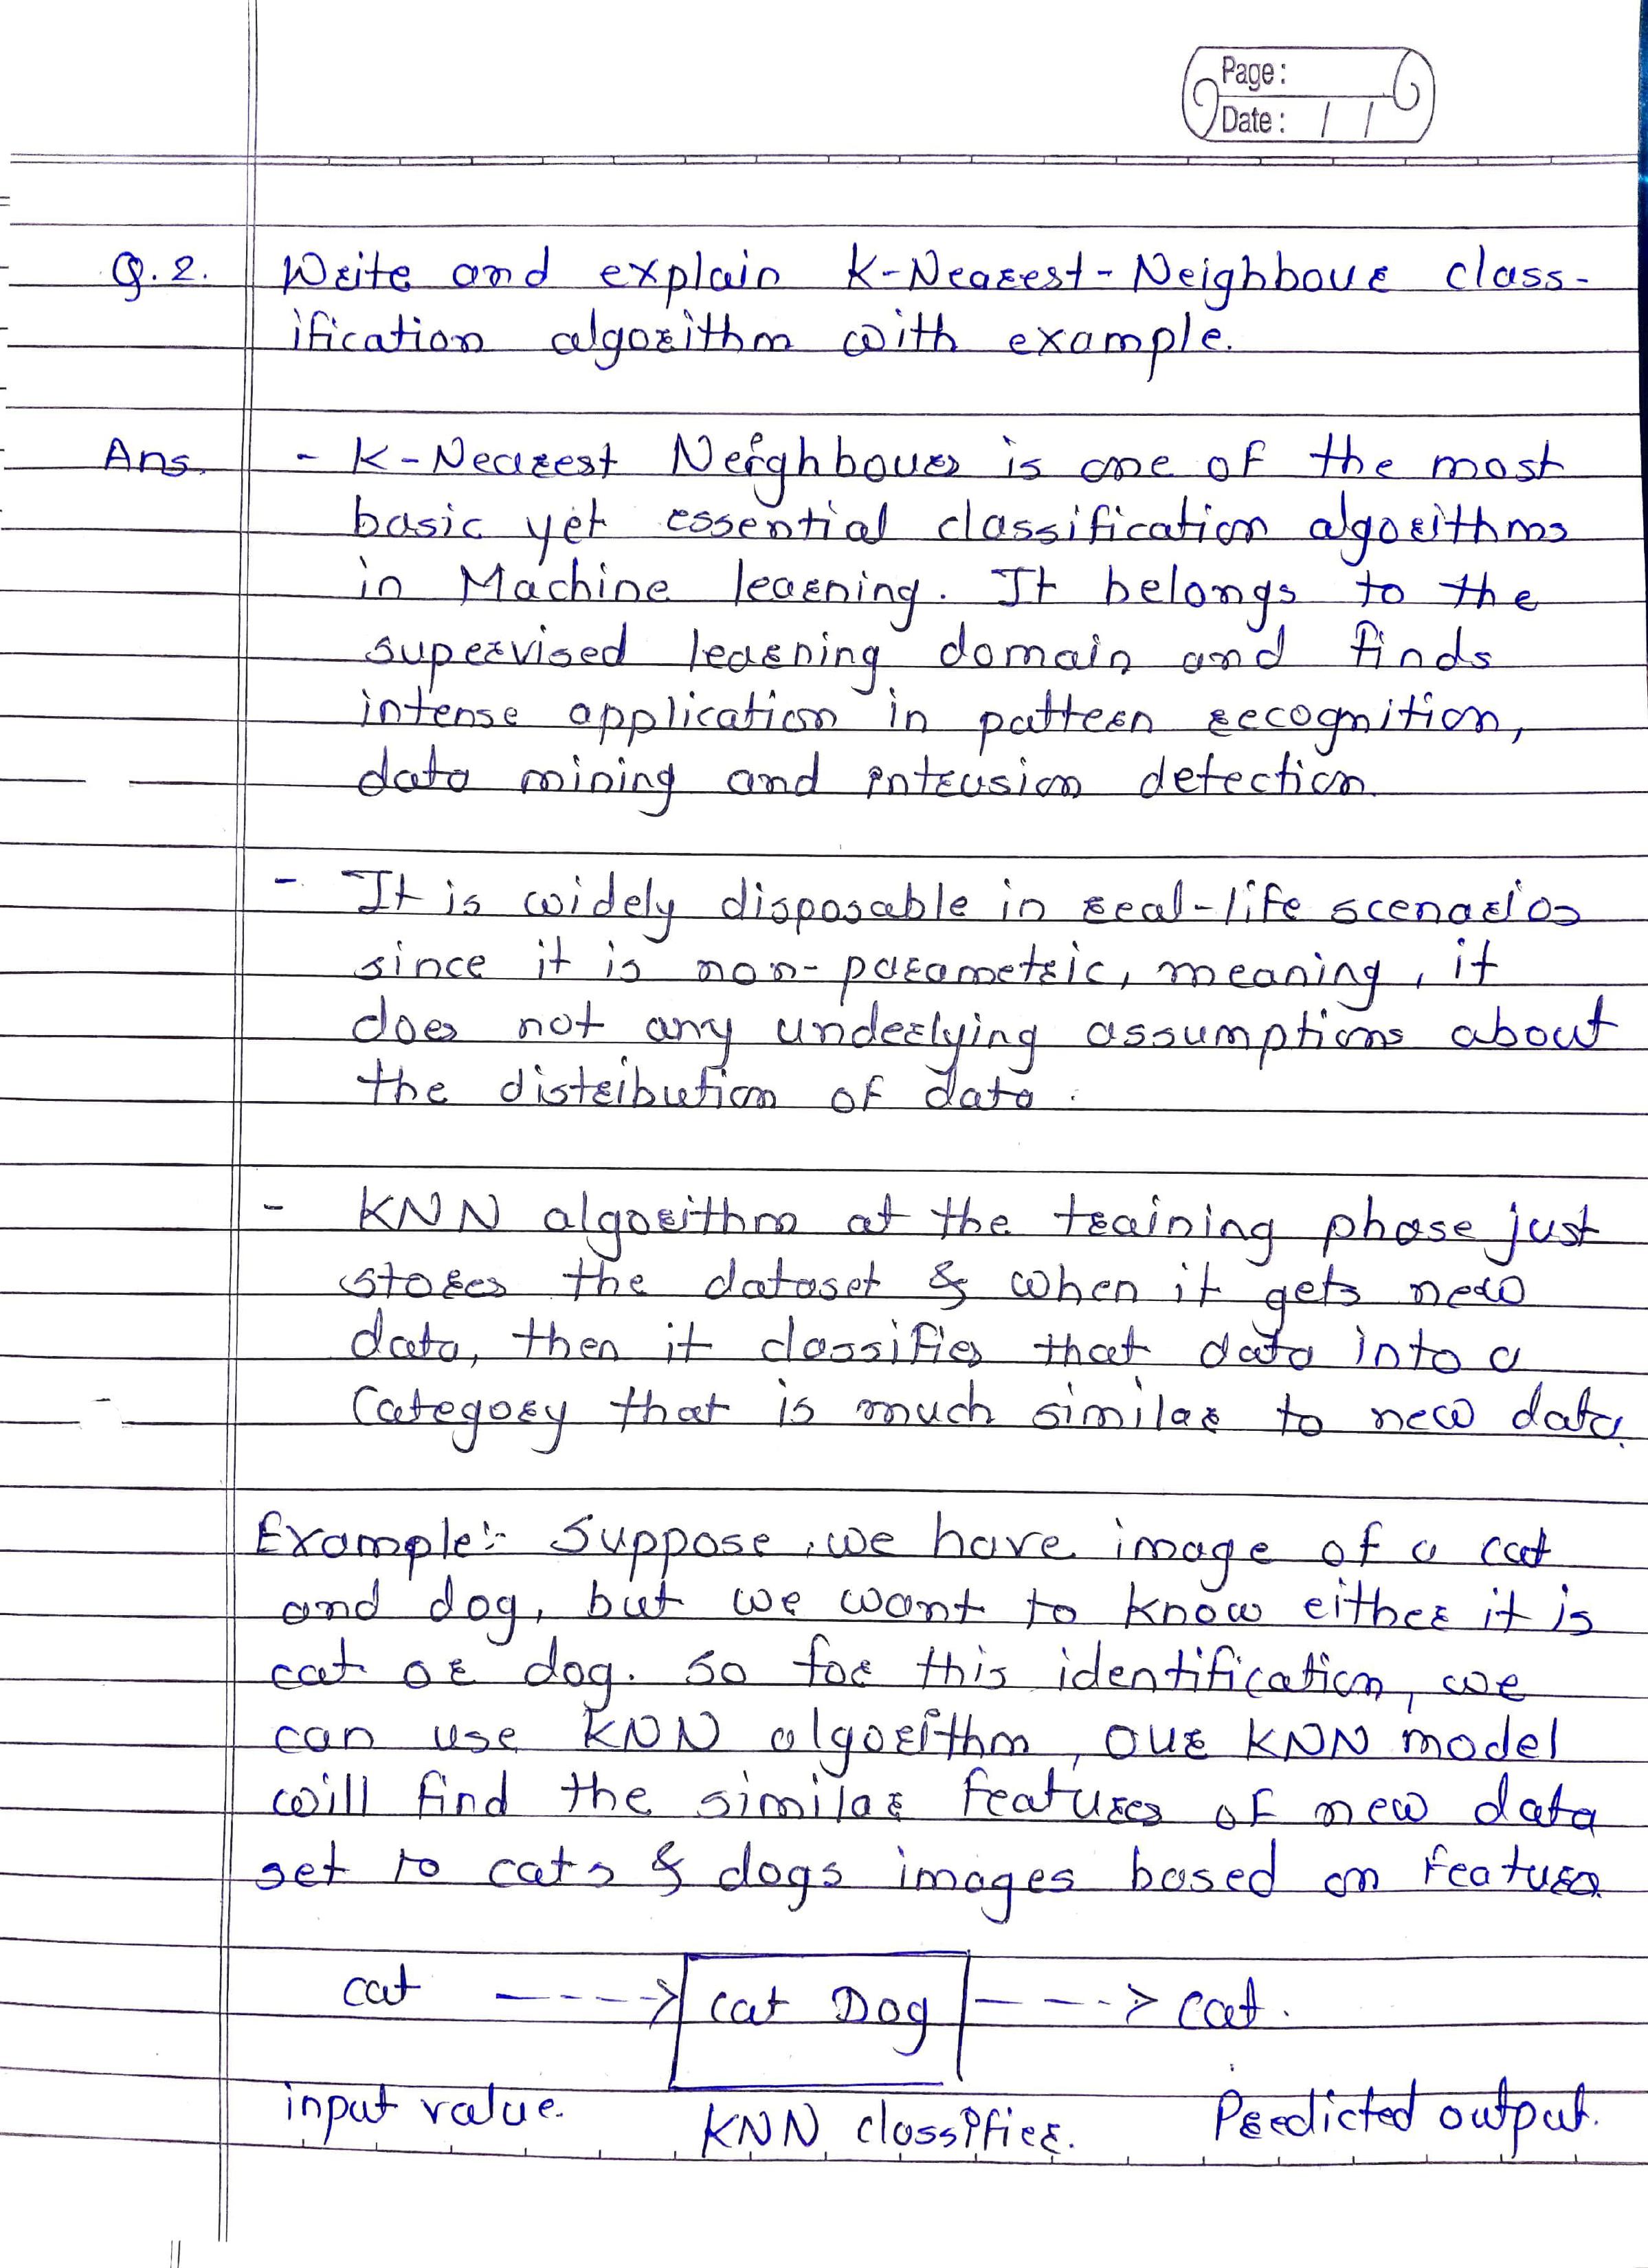 Page :
Date : / /
Q.2. Write and explain K-Nearest-Neighbour class-
ification algorithm with example.
Ans. - K-Nearest Neighbours is one of the most
basic yet essential classification algorithms
in Machine learning. It belongs to the
supervised learning domain and finds
intense application in pattern recognition,
data mining and intrusion detection.
- It is widely disposable in real-life scenarios
since it is non-parametric, meaning, it
does not any underlying assumptions about
the distribution of data.
- KNN algorithm at the training phase just
stores the dataset & when it gets new
data, then it classifies that data into a
Category that is much similar to new data.
Example:- Suppose, we have image of a cat
and dog, but we want to know either it is
cat or dog. So for this identification, we
can use KNN algorithm, our KNN model
will find the similar features of new data
set to cats & dogs images based on features
cat ----> cat Dog ----> cat.
input value. KNN classifier. Predicted output.